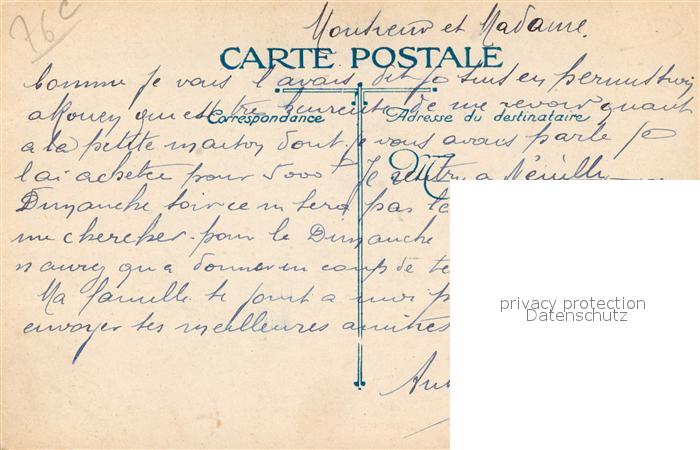 76c
Monsieur et Madame.
CARTE POSTALE
Comme je vous l avais dit je suis en permission
a Rouen qui est tre heureuse de me revoir quant
Correspondance
Adresse du destinataire
a la petite maison dont je vous avais parle je
l ai achetee pour 5000 f Je rentre a
M
Dimanche soir ce n sera pas la
me chercher. pour le Dimanche
n aurez qu a donner un coup de te
Ma famille se joint a moi p
envoyer ses meilleures amities
privacy protection
Datenschutz